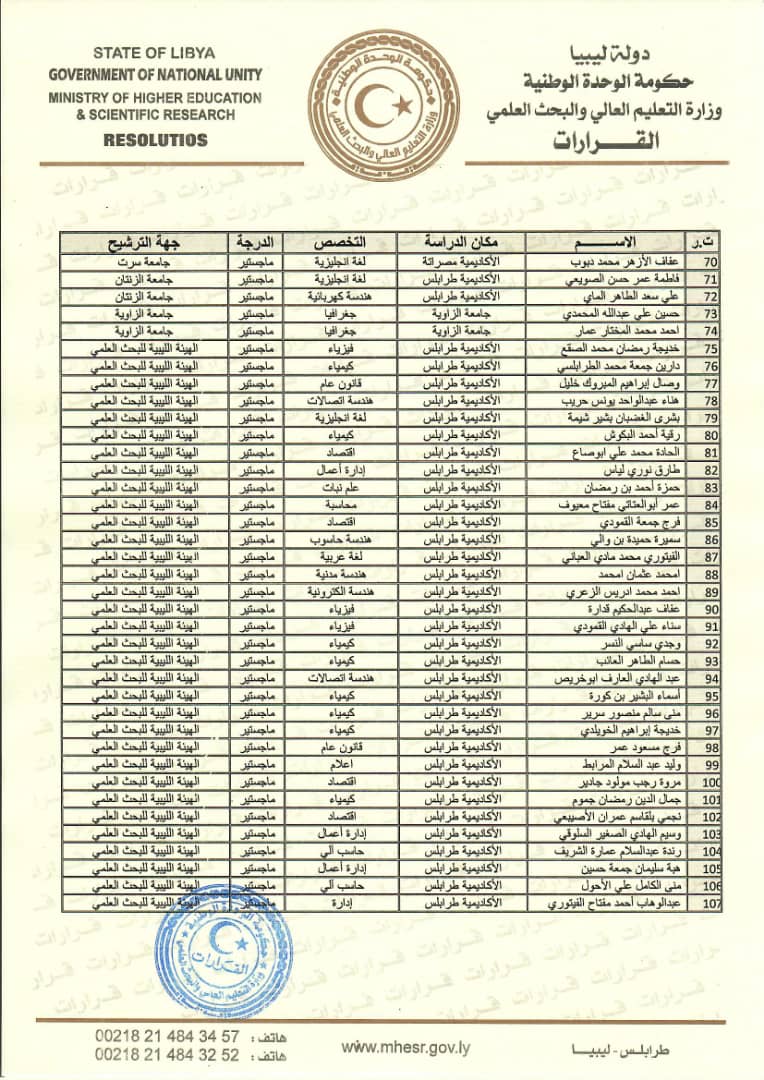 STATE OF LIBYA
GOVERNMENT OF NATIONAL UNITY
MINISTRY OF HIGHER EDUCATION
& SCIENTIFIC RESEARCH
RESOLUTIOS
دولة ليبيا
حكومة الوحدة الوطنية
وزارة التعليم العالي والبحث العلمي
القـــرارات
حكومة الوحدة الوطنية
وزارة التعليم العالي والبحث العلمي
ت.ر الاســــم مكان الدراسة التخصص الدرجة جهة الترشيح
70 عفاف الأزهر محمد دبوب الأكاديمية مصراتة لغة انجليزية ماجستير جامعة سرت
71 فاطمة عمر حسن الصويعي الأكاديمية طرابلس لغة انجليزية ماجستير جامعة الزنتان
72 علي سعد الطاهر الماي الأكاديمية طرابلس هندسة كهربائية ماجستير جامعة الزنتان
73 حسين علي عبدالله المحمدي جامعة الزاوية جغرافيا ماجستير جامعة الزاوية
74 احمد محمد المختار عمار جامعة الزاوية جغرافيا ماجستير جامعة الزاوية
75 خديجة رمضان محمد الصقع الأكاديمية طرابلس فيزياء ماجستير الهيئة الليبية للبحث العلمي
76 دارين جمعة محمد الطرابلسي الأكاديمية طرابلس كيمياء ماجستير الهيئة الليبية للبحث العلمي
77 وصال إبراهيم المبروك خليل الأكاديمية طرابلس قانون عام ماجستير الهيئة الليبية للبحث العلمي
78 هناء عبدالواحد يونس حريب الأكاديمية طرابلس هندسة اتصالات ماجستير الهيئة الليبية للبحث العلمي
79 بشرى الغضبان بشير شيمة الأكاديمية طرابلس لغة انجليزية ماجستير الهيئة الليبية للبحث العلمي
80 رقية أحمد البكوش الأكاديمية طرابلس كيمياء ماجستير الهيئة الليبية للبحث العلمي
81 الحادة محمد علي ابوصاع الأكاديمية طرابلس اقتصاد ماجستير الهيئة الليبية للبحث العلمي
82 طارق نوري لياس الأكاديمية طرابلس إدارة أعمال ماجستير الهيئة الليبية للبحث العلمي
83 حمزة أحمد بن رمضان الأكاديمية طرابلس علم نبات ماجستير الهيئة الليبية للبحث العلمي
84 عمر مفتاح معيوف الأكاديمية طرابلس محاسبة ماجستير الهيئة الليبية للبحث العلمي
85 فرج جمعة القمودي الأكاديمية طرابلس اقتصاد ماجستير الهيئة الليبية للبحث العلمي
86 سميرة حميدة بن والي الأكاديمية طرابلس هندسة حاسوب ماجستير الهيئة الليبية للبحث العلمي
87 الفيتوري محمد مادي العباني الأكاديمية طرابلس لغة عربية ماجستير الهيئة الليبية للبحث العلمي
88 امحمد عثمان امحمد الأكاديمية طرابلس هندسة مدنية ماجستير الهيئة الليبية للبحث العلمي
89 احمد محمد ادريس الزعري الأكاديمية طرابلس هندسة الكترونية ماجستير الهيئة الليبية للبحث العلمي
90 عفاف عبدالحكيم قدارة الأكاديمية طرابلس فيزياء ماجستير الهيئة الليبية للبحث العلمي
91 سناء علي الهادي القمودي الأكاديمية طرابلس فيزياء ماجستير الهيئة الليبية للبحث العلمي
92 وجدي ساسي النسر الأكاديمية طرابلس كيمياء ماجستير الهيئة الليبية للبحث العلمي
93 حسام الطاهر العائب الأكاديمية طرابلس كيمياء ماجستير الهيئة الليبية للبحث العلمي
94 عبد الهادي العارف ابوخريص الأكاديمية طرابلس هندسة اتصالات ماجستير الهيئة الليبية للبحث العلمي
95 أسماء البشير بن كورة الأكاديمية طرابلس كيمياء ماجستير الهيئة الليبية للبحث العلمي
96 منى سالم منصور سرير الأكاديمية طرابلس كيمياء ماجستير الهيئة الليبية للبحث العلمي
97 خديجة إبراهيم الخويلدي الأكاديمية طرابلس كيمياء ماجستير الهيئة الليبية للبحث العلمي
98 فرج مسعود عمر الأكاديمية طرابلس قانون عام ماجستير الهيئة الليبية للبحث العلمي
99 وليد عبد السلام المرابط الأكاديمية طرابلس اعلام ماجستير الهيئة الليبية للبحث العلمي
100 مروة رجب مولود جادير الأكاديمية طرابلس اقتصاد ماجستير الهيئة الليبية للبحث العلمي
101 جمال الدين رمضان جموم الأكاديمية طرابلس كيمياء ماجستير الهيئة الليبية للبحث العلمي
102 نجمي بلقاسم عمران الأصيبعي الأكاديمية طرابلس اقتصاد ماجستير الهيئة الليبية للبحث العلمي
103 وسيم الهادي الصغير السلوقي الأكاديمية طرابلس إدارة أعمال ماجستير الهيئة الليبية للبحث العلمي
104 رندة عبدالسلام عمارة الشريف الأكاديمية طرابلس حاسب آلي ماجستير الهيئة الليبية للبحث العلمي
105 هبة سليمان جمعة حسين الأكاديمية طرابلس إدارة أعمال ماجستير الهيئة الليبية للبحث العلمي
106 منى الكامل علي الأحول الأكاديمية طرابلس حاسب آلي ماجستير الهيئة الليبية للبحث العلمي
107 عبدالوهاب أحمد مفتاح الفيتوري الأكاديمية طرابلس إدارة ماجستير الهيئة الليبية للبحث العلمي
حكومة الوحدة الوطنية
القرارات
وزارة التعليم العالي والبحث العلمي
هاتف : 00218 21 484 34 57
هاتف : 00218 21 484 32 52
www.mhesr.gov.ly
طرابلس - ليبيا